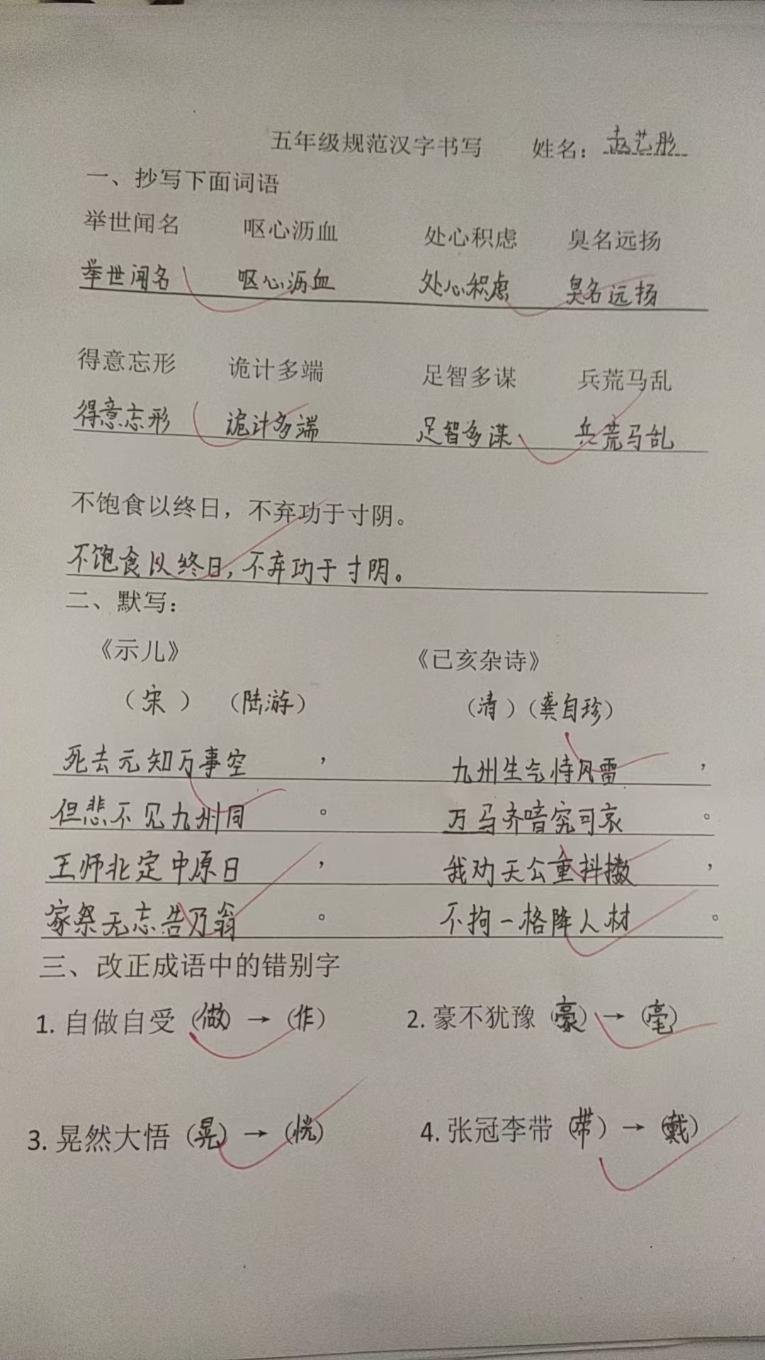 五年级规范汉字书写 姓名：赵艺彤
一、抄写下面词语
举世闻名 呕心沥血 处心积虑 臭名远扬
举世闻名 呕心沥血 处心积虑 臭名远扬
得意忘形 诡计多端 足智多谋 兵荒马乱
得意忘形 诡计多端 足智多谋 兵荒马乱
不饱食以终日，不弃功于寸阴。
不饱食以终日，不弃功于寸阴。
二、默写：
《示儿》 《已亥杂诗》
（宋） （陆游） （清）（龚自珍）
死去元知万事空， 九州生气恃风雷，
但悲不见九州同。 万马齐喑究可哀。
王师北定中原日， 我劝天公重抖擞，
家祭无忘告乃翁。 不拘一格降人材。
三、改正成语中的错别字
1. 自做自受（做）→（作） 2. 豪不犹豫（豪）→（毫）
3. 晃然大悟（晃）→（恍） 4. 张冠李带（带）→（戴）